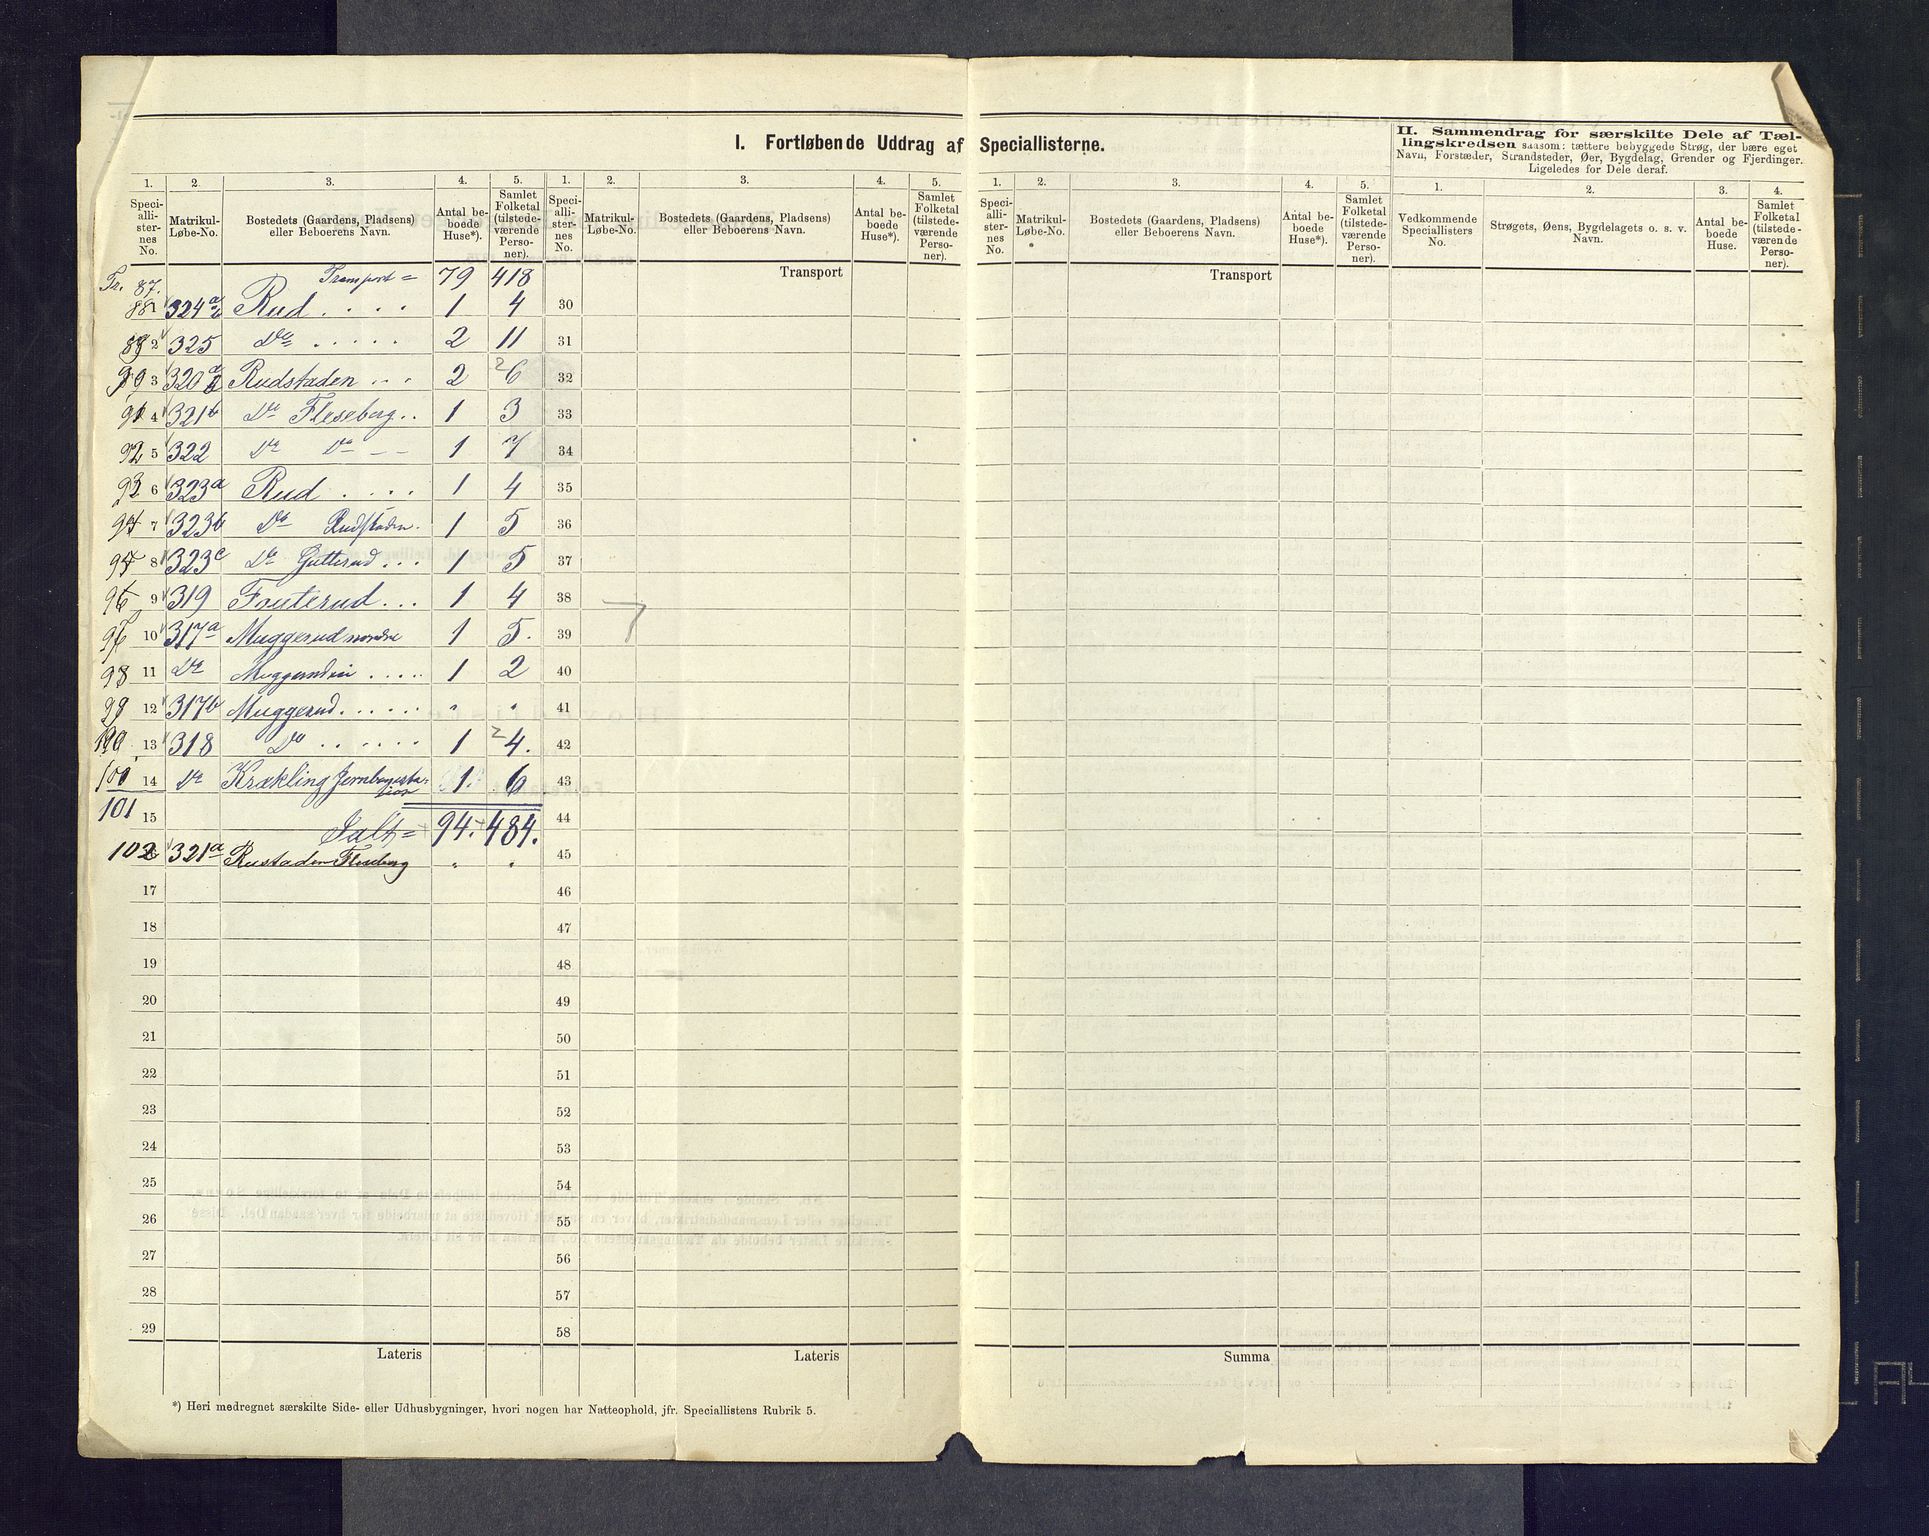 I. Fortløbende Uddrag af Speciallisterne.
II. Sammendrag for særskilte Dele af Tæl-
lingskredsen saasom: tættere bebyggede Strøg, der bære eget
Navn, Forstæder, Strandsteder, Øer, Bygdelag, Grender og Fjerdinger.
Ligeledes for Dele deraf.
1. 2. 3. 4. 5. 1. 2. 3. 4. 5. 1. 2. 3. 4. 5. 1. 2. 3. 4.
Speci-alli-ster-nes No. Matrikul-Løbe-No. Bostedets (Gaardens, Pladsens) eller Beboerens Navn. Antal be-boede Huse*). Samlet Folketal (tilstede-værende Perso-ner).
Speci-alli-ster-nes No. Matrikul-Løbe-No. Bostedets (Gaardens, Pladsens) eller Beboerens Navn. Antal be-boede Huse*). Samlet Folketal (tilstede-værende Perso-ner).
Speci-alli-ster-nes No. Matrikul-Løbe-No. Bostedets (Gaardens, Pladsens) eller Beboerens Navn. Antal be-boede Huse*). Samlet Folketal (tilstede-værende Perso-ner).
Vedkommende Speciallisters No. Strøgets, Øens, Bygdelagets o. s. v. Navn. Antal be-boede Huse. Samlet Folketal (tilstede-værende Perso-ner).
Fr. 87. Transport = 79 418 Transport Transport
88 1 324a Rud . . . . 1 4 30
2 325 Do . . . . . 2 11 31
3 320a Rudstaden . . . 2 6 32
4 321b Do Fleseberg . . 1 3 33
92 5 322 Do Do 1 7 34
93 6 323a Rud . . . . 1 4 35
94 7 323b Do Rudstaden . 1 5 36
95 8 323c Do Gutterud . . . 1 5 37
96 9 319 Fruterud . . . 1 4 38
97 10 317a Muggerud nordre 1 5. 39
98 11 Do 1 2 40
99 12 317b Muggerud . . . . . . " " 41
100 13 318 Do . . . . . . 1 4. 42
14 Do Krækling Jernbanesta-
tion 1. 6 43
101 15 Ialt = 94. 484. 44
102 321a Rustaden Fleseberg " " 45
17 46
18 47
19 48
20 49
21 50
22 51
23 52
24 53
25 54
26 55
27 56
28 57
29 58
Lateris Lateris Summa
*) Heri medregnet særskilte Side- eller Udhusbygninger, hvori nogen har Natteophold, jfr. Speciallistens Rubrik 5.